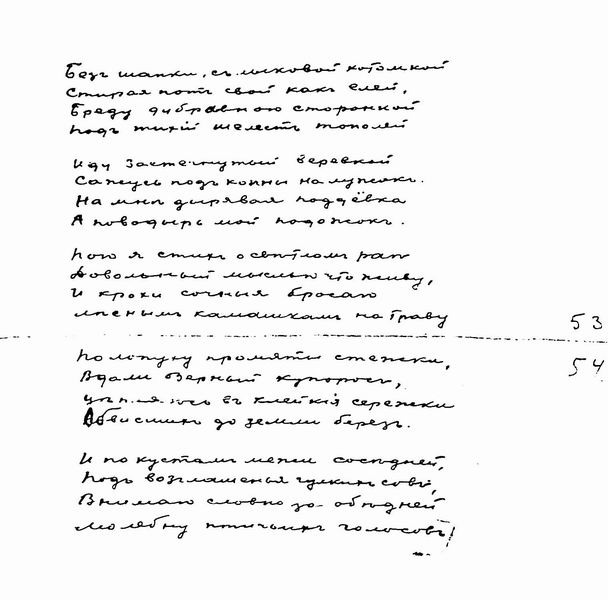 Безъ шапки, съ лыковой котомкой
Стирая потъ свой какъ елей,
Бреду дубравною сторонкой
Подъ тихій шелестъ тополей
Иду застегнутый веревкой
Сажусь подъ копны на лужокъ.
На мнѣ дырявая поддёвка
А поводырь мой подожокъ.
Пою я стихъ о свѣтломъ раѣ
Довольный мыслью что живу,
И крохи сочныя бросаю
Лѣснымъ камашкамъ на траву
53
По лопуху промяты стежки,
54
Вдали озерный купоросъ,
Цѣпляюсь въ клейкія сережки
Обвисшихъ до земли березъ.
И по кустамъ межи сосѣдней,
Подъ возглашенья гулкихъ совъ,
Внимаю словно за обѣдней
Молебну птичьихъ голосовъ!